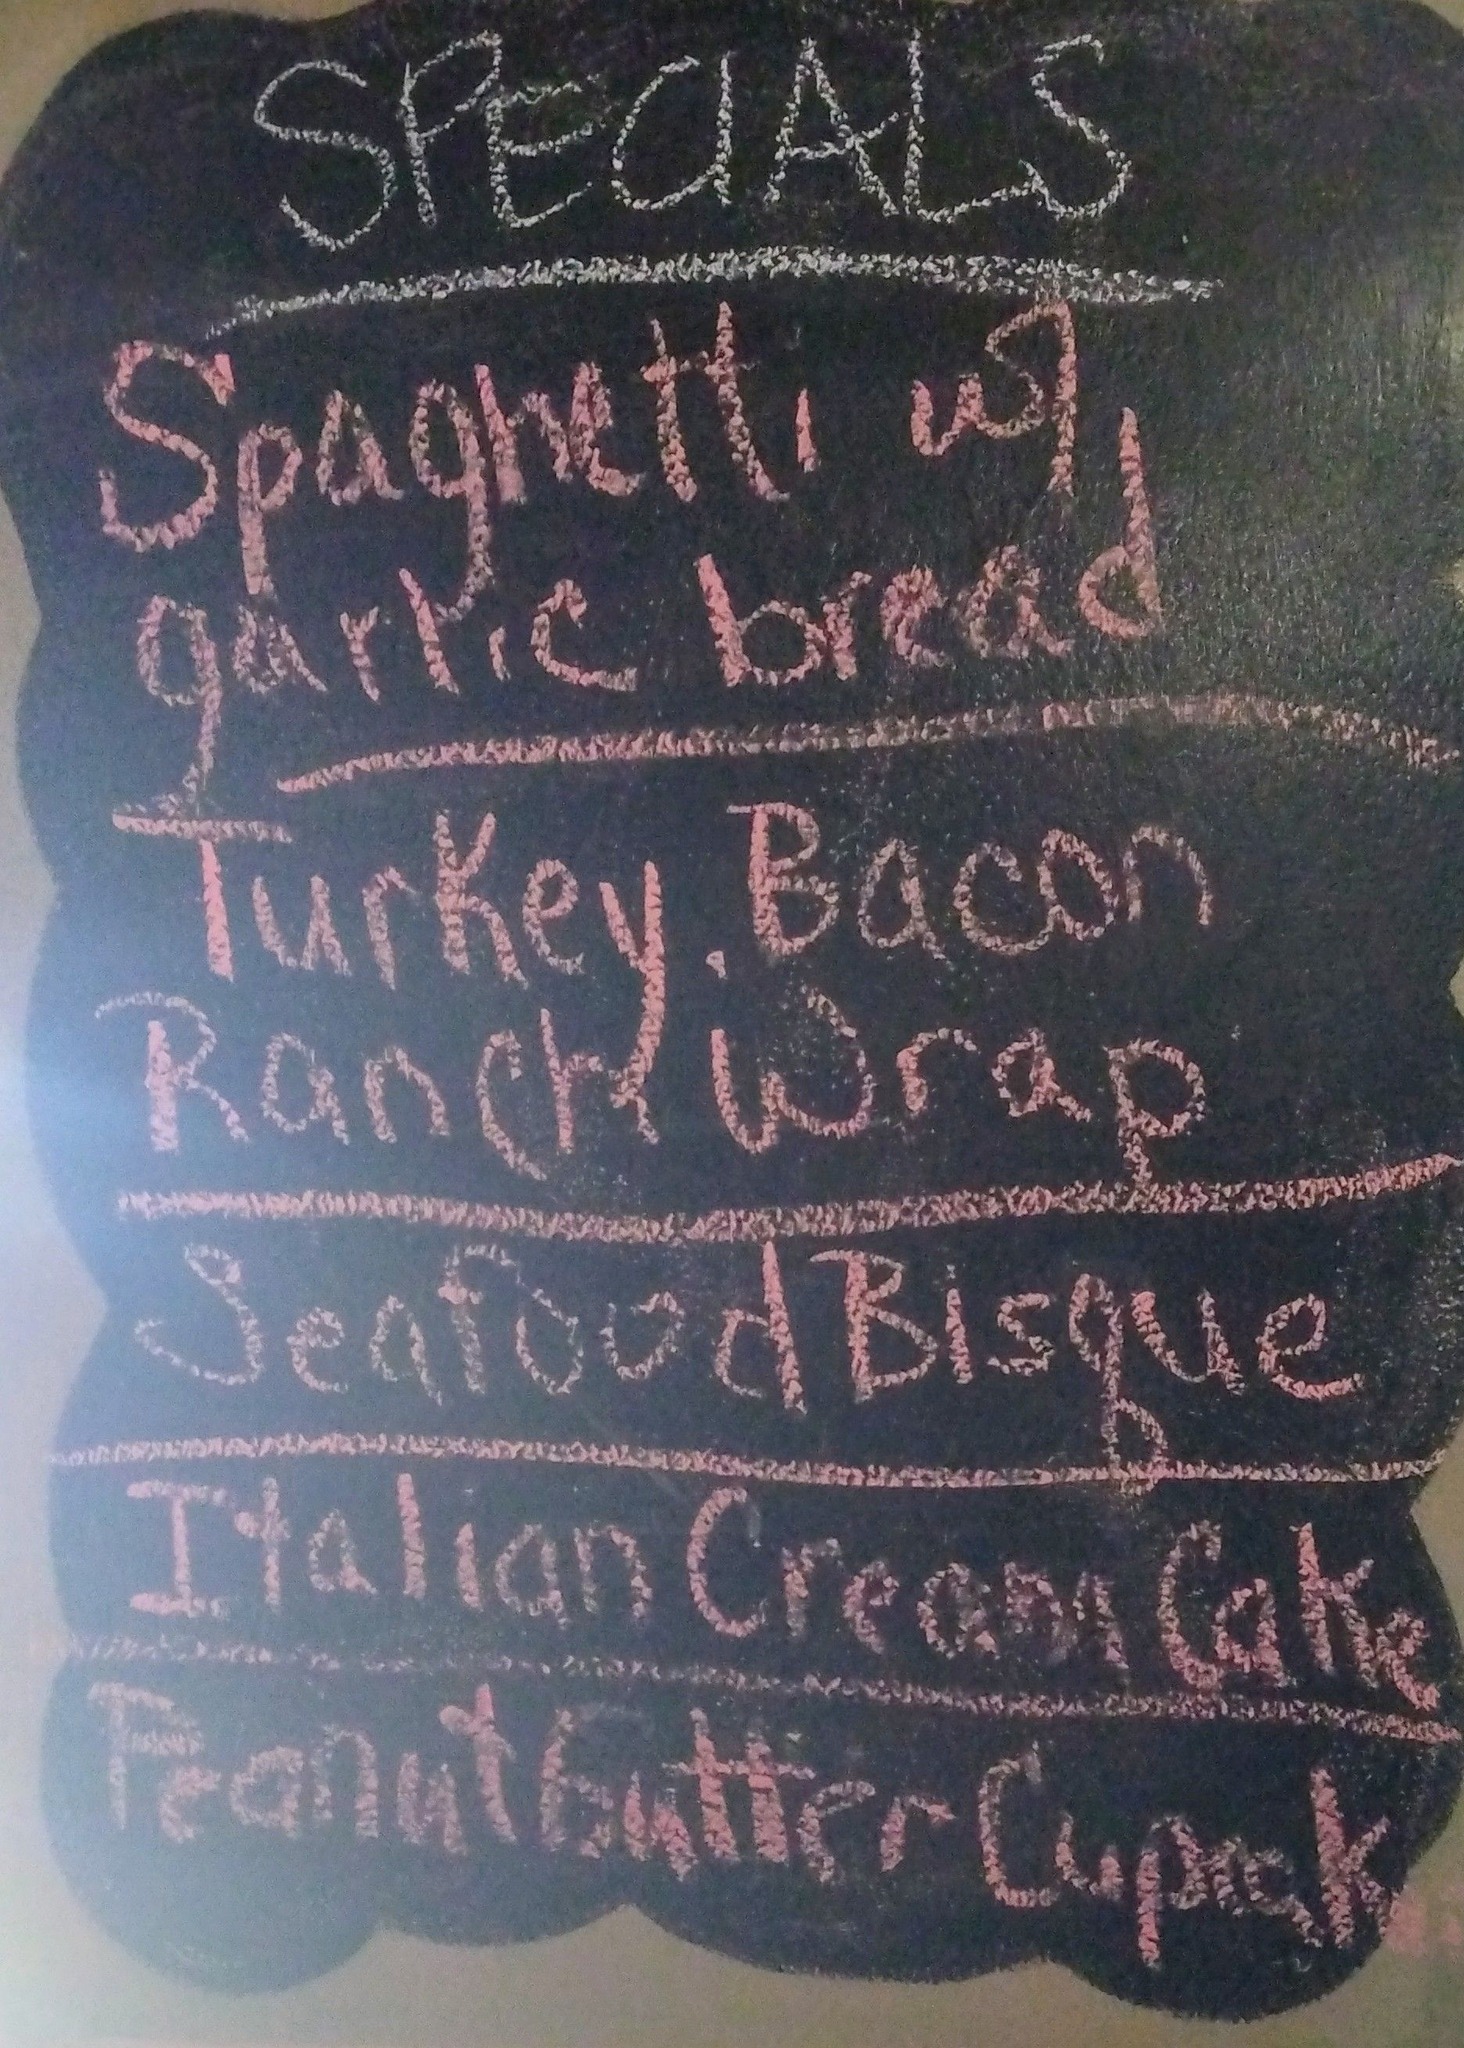 SPECIALS
Spaghetti w/
garlic bread
Turkey, Bacon
Ranch Wrap
Seafood Bisque
Italian Cream Cake
Peanut Butter